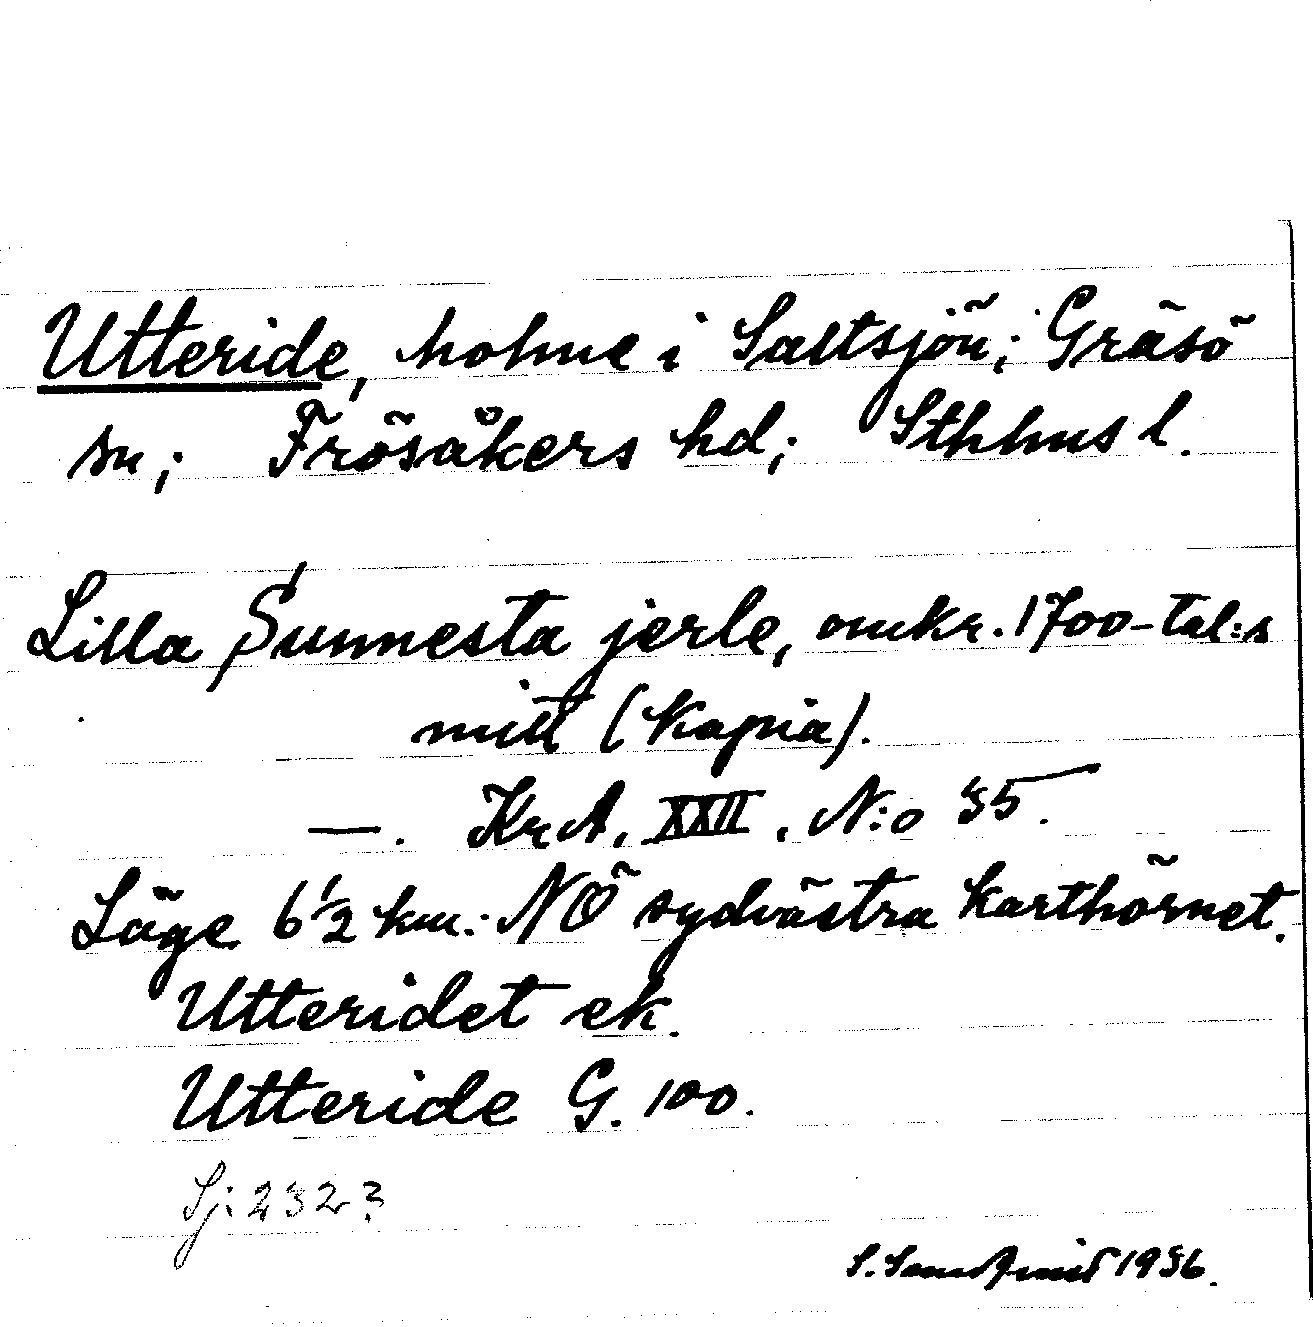 Utteride, holme i Saltsjön; Gräsö
sn; Frösåkers hd; Sthlms l.
Lilla Sunnesta jerle, omkr. 1700-tal:s
mitt (Kopia).
—. KrA, XXII, N:o 35.
Läge 6 1/2 km. NÖ sydvästra karthörnet.
Utteridet ek.
Utteride G. 100.
Sj: 232?
S. 1936.